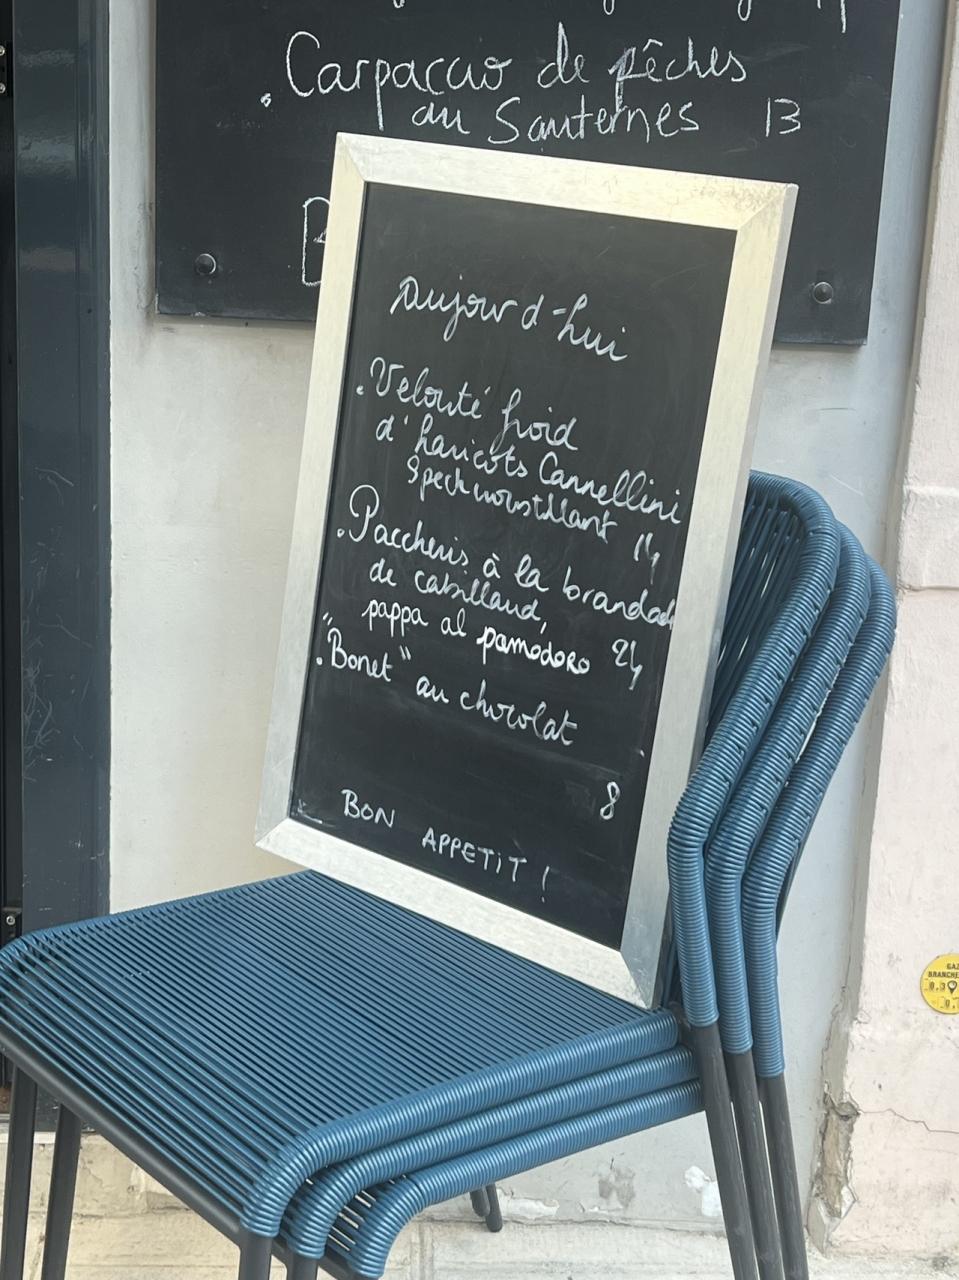 Carpaccio de pêches
au Sauternes 13
Aujourd-hui
. Velouté froid
d'haricots Cannellini
Speck croustillant 14
. Paccheris à la brandade
de cabillaud,
pappa al pomodoro 24
. "Bonet" au chocolat
8
BON APPETIT !
GAZ
BRANCHE